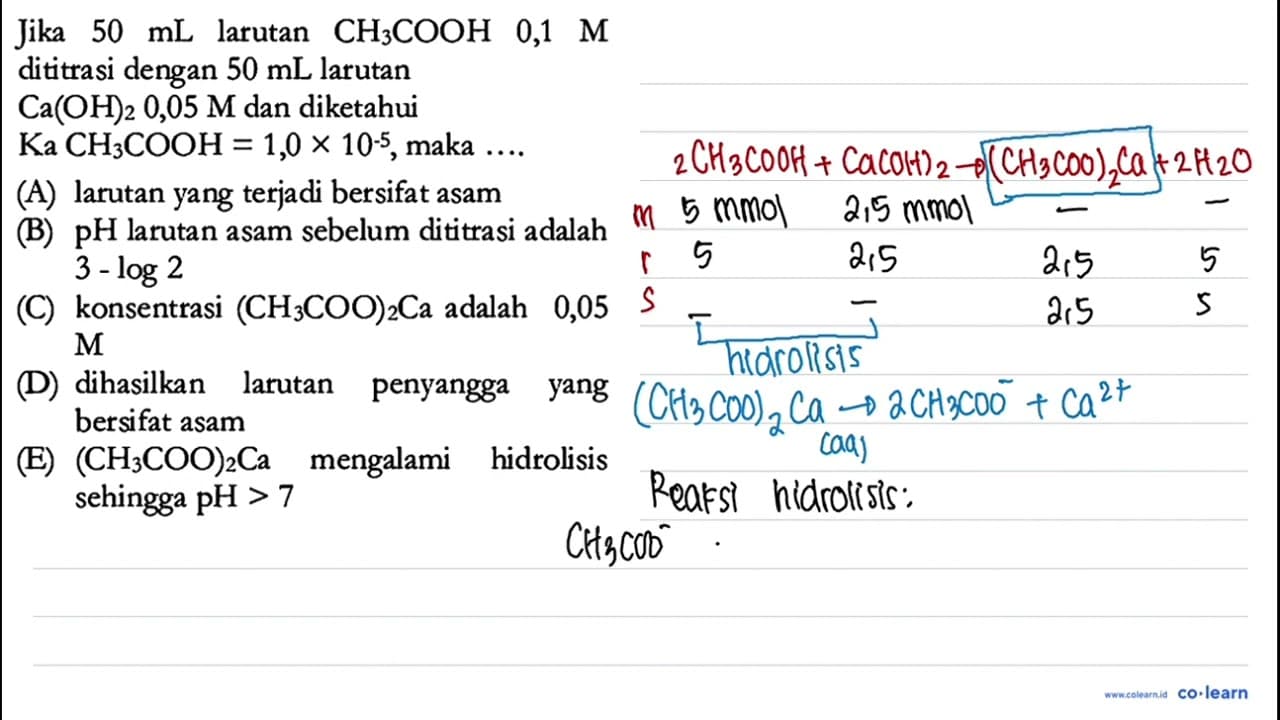 Jika 50 mL larutan CH₃COOH 0,1 M
dititrasi dengan 50 mL larutan
Ca(OH)₂ 0,05 M dan diketahui
Ka CH₃COOH = 1,0 × 10⁻⁵, maka ....
(A) larutan yang terjadi bersifat asam
(B) pH larutan asam sebelum dititrasi adalah
3 - log 2
(C) konsentrasi (CH₃COO)₂Ca adalah 0,05
M
(D) dihasilkan larutan penyangga yang
bersifat asam
(E) (CH₃COO)₂Ca mengalami hidrolisis
sehingga pH > 7
2CH₃COOH + Ca(OH)₂ → (CH₃COO)₂Ca + 2H₂O
m 5 mmol 2,5 mmol - -
r 5 2,5 2,5 5
s - - 2,5 5
hidrolisis
(CH₃COO)₂Ca → 2CH₃COO⁻ + Ca²⁺
(aq)
Reaksi hidrolisis:
CH₃COO⁻ .
www.colearn.id co·learn